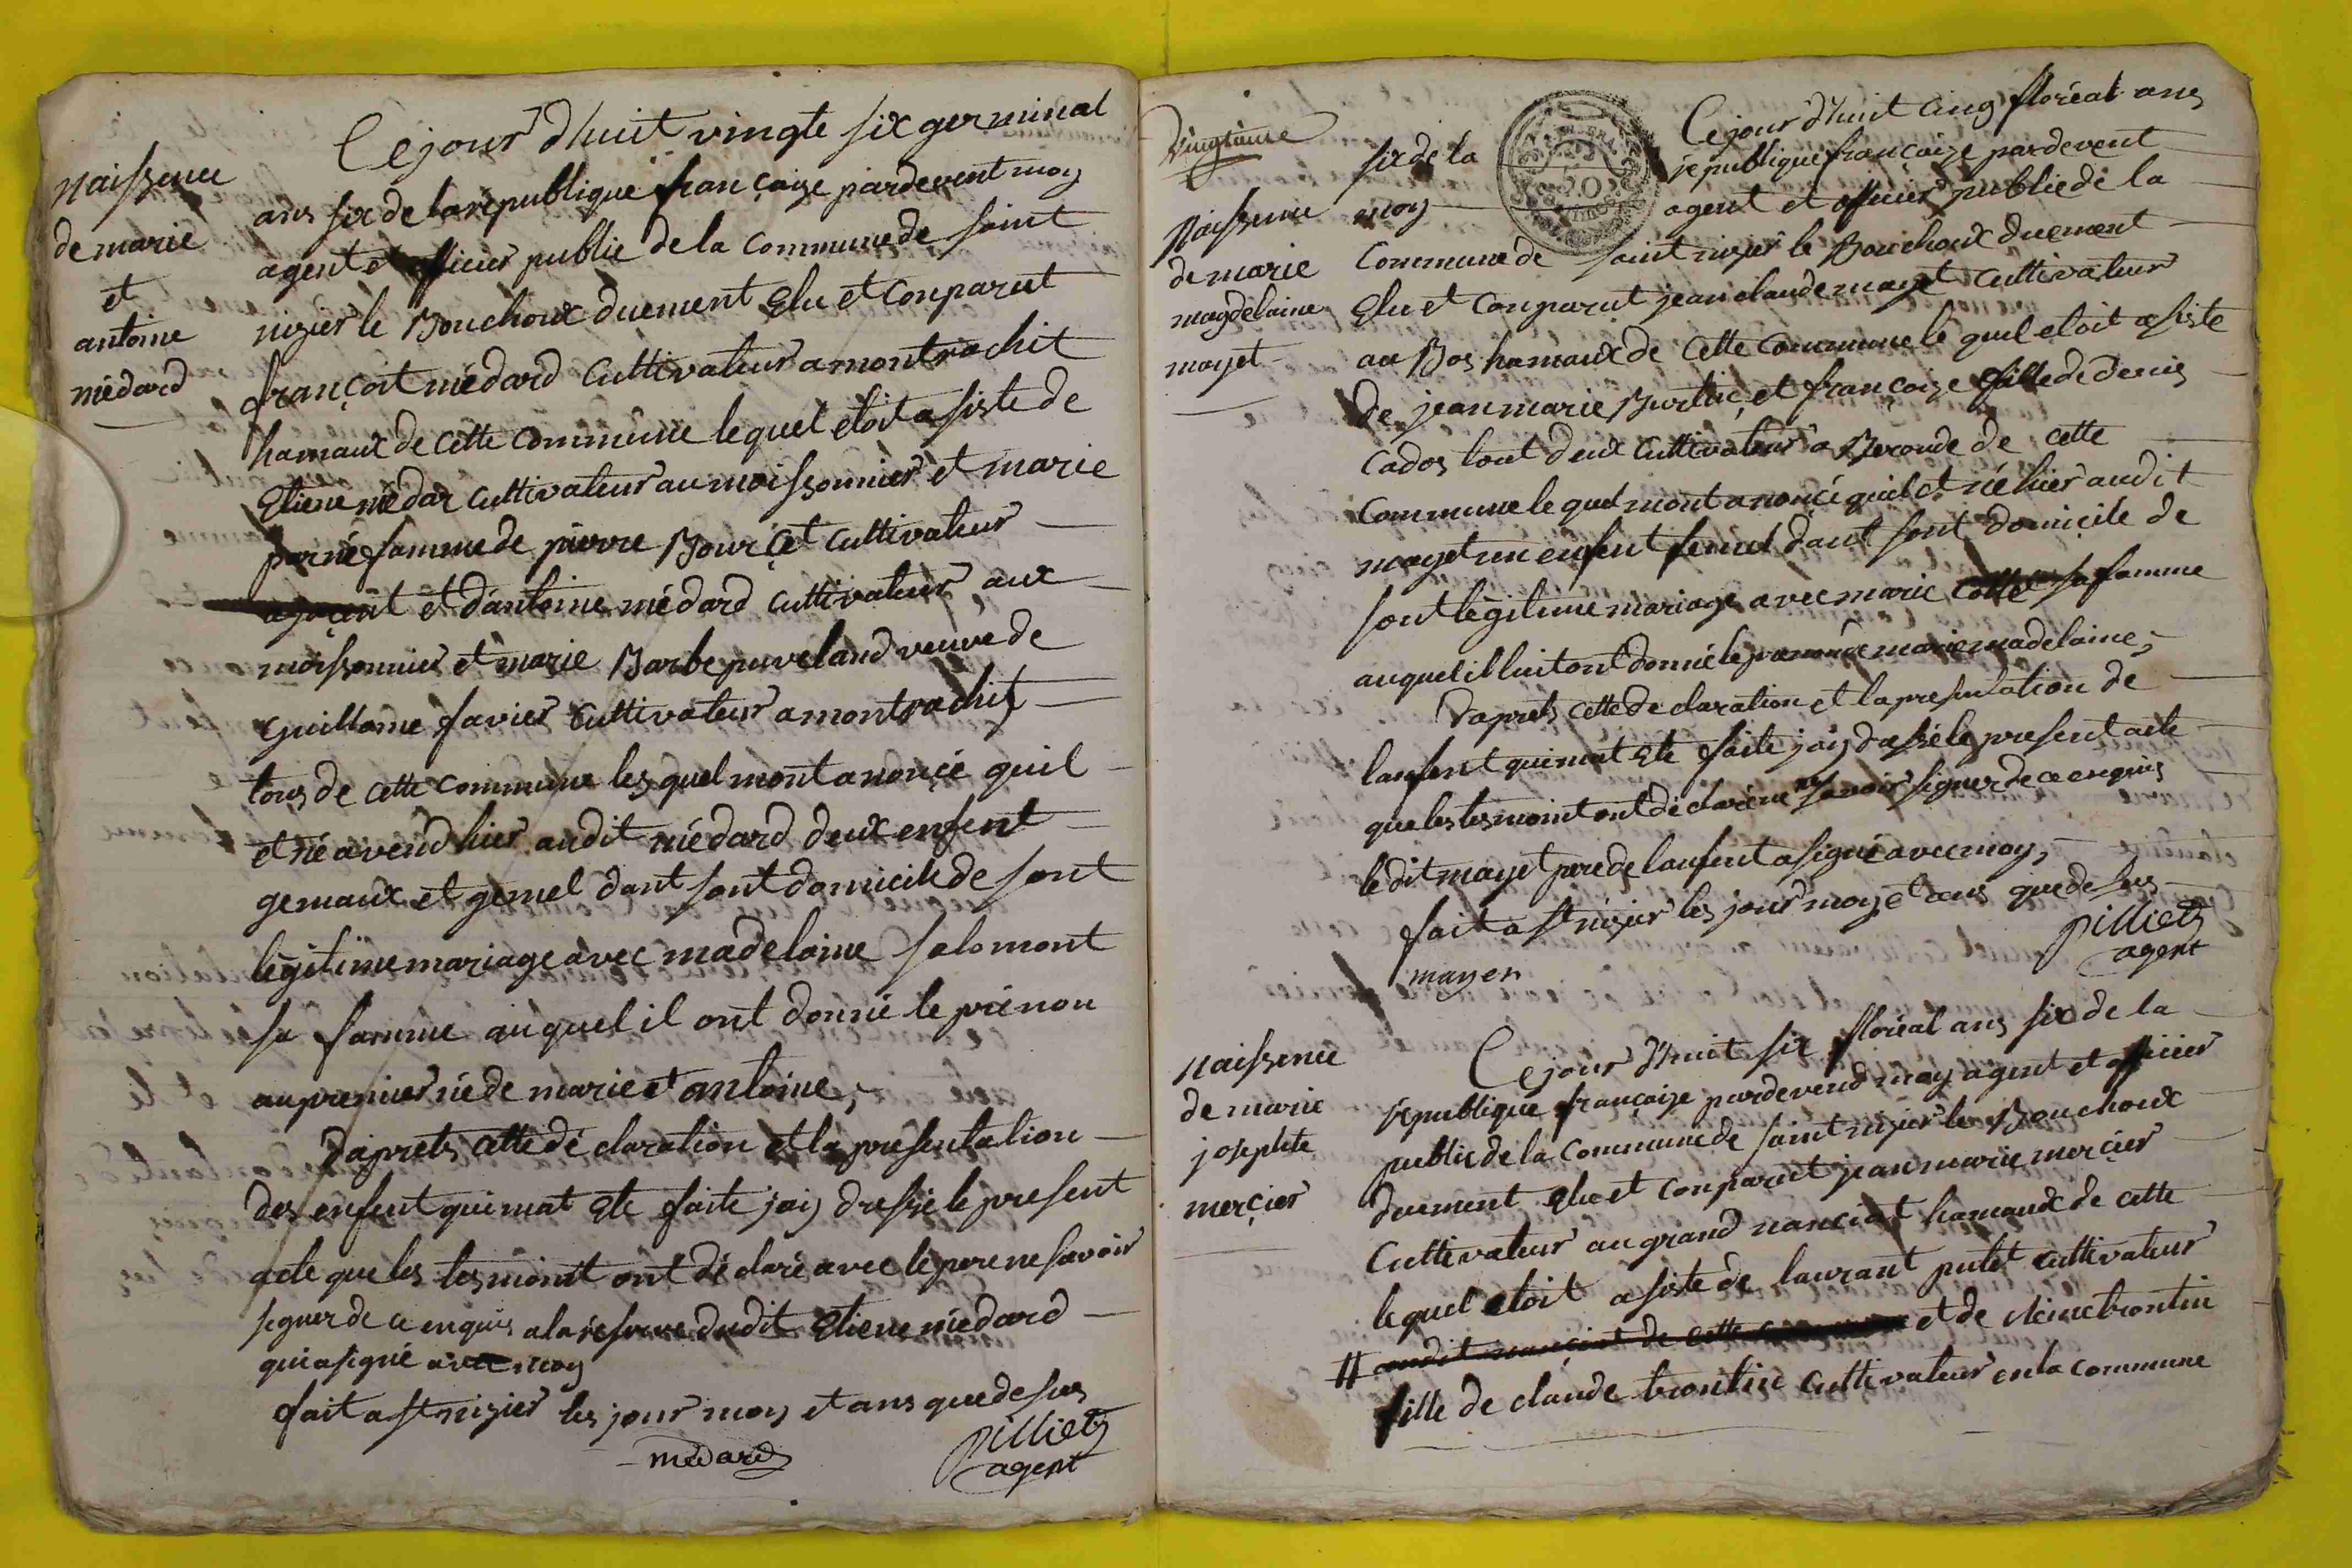 naissence
de marie
et
antoine
médard
Ce jour d'huit vingte six germinal
ans six de la republique françaize pardevent moy
agent et officier public de la commune de saint
nizier le Bouchoux duement Elu et Conparut
françoit médard Cultivateur a montrachit
hamaux de cette commune lequel etoit asiste de
Etiene médar cultivateur au moissonnier et marie
famme de pierre Bourçet cultivateur
et d'antoine médard cultivateur aux
moissonnier et marie Barbe puveland veuve de
Guillome favier Cultivateur a montrachit
tous de cette commune les quel mont anoncé quil
et né avend hier audit médard deux enfent
gemaux et gemel dant sont domicile de sont
légitime mariage avec madelaine salomont
sa famme auquel il ont donné le prénon
au premier né de marie et antoine,
daprets cette déclaration et la présentation
des enfent qui mat Ete faite jaiy dressé le present
acte que les tesmoint ont déclaré avec le pere ne savoir
signer de ce enquis a la reserve dudit Etiene médard
qui a signé avec moy
fait a st nizier les jour moy et ans que desus
médard
pilliet
agent
Vingtieme
naissence
de marie
magdelaine
mayet
Ce jour d'huit cinq floréal ans
six de la republique françaize pardevent
moy agent et officier public de la
Commune de saint nizier le Bouchoux duement
Elu et Conparut jean claude mayet cultivateur
au Bos hamaux de cette Commune le quel etoit asiste
de jean marie Burtin et françoize fille de denis
Cados tout deux cultivateur a Beronde de cette
Commune le quel mont anoncé quil et né hier audit
mayet un enfent femel dant sont domicile de
sont légitime mariage avec marie Collet sa famme
auquel il luit ont donné le prenom de marie madelaine,
daprets cette declaration et la presentation de
lanfent qui mat Ete faite jaiy dressé le present acte
que les tesmoint ont déclaré ne savoir signer de ce enquis
le dit mayet pere de lanfent a signé avec moy,
fait a st nizier les jour moy et ans que desus
mayet
pilliet
agent
naissence
de marie
josephte
merçier
Ce jour d'huit six floréal ans six de la
république françaize pardevend moy agent et officier
public de la Commune de saint nizier le Bouchoux
duement Elu et Conparut jean marie merçier
Cultivateur au grand nanciat hamaux de cette
lequel etoit asiste de laurant putet cultivateur
# audit nançiat de cette commune et de cleine trontin
fille de claude trontin cultivateur en la commune